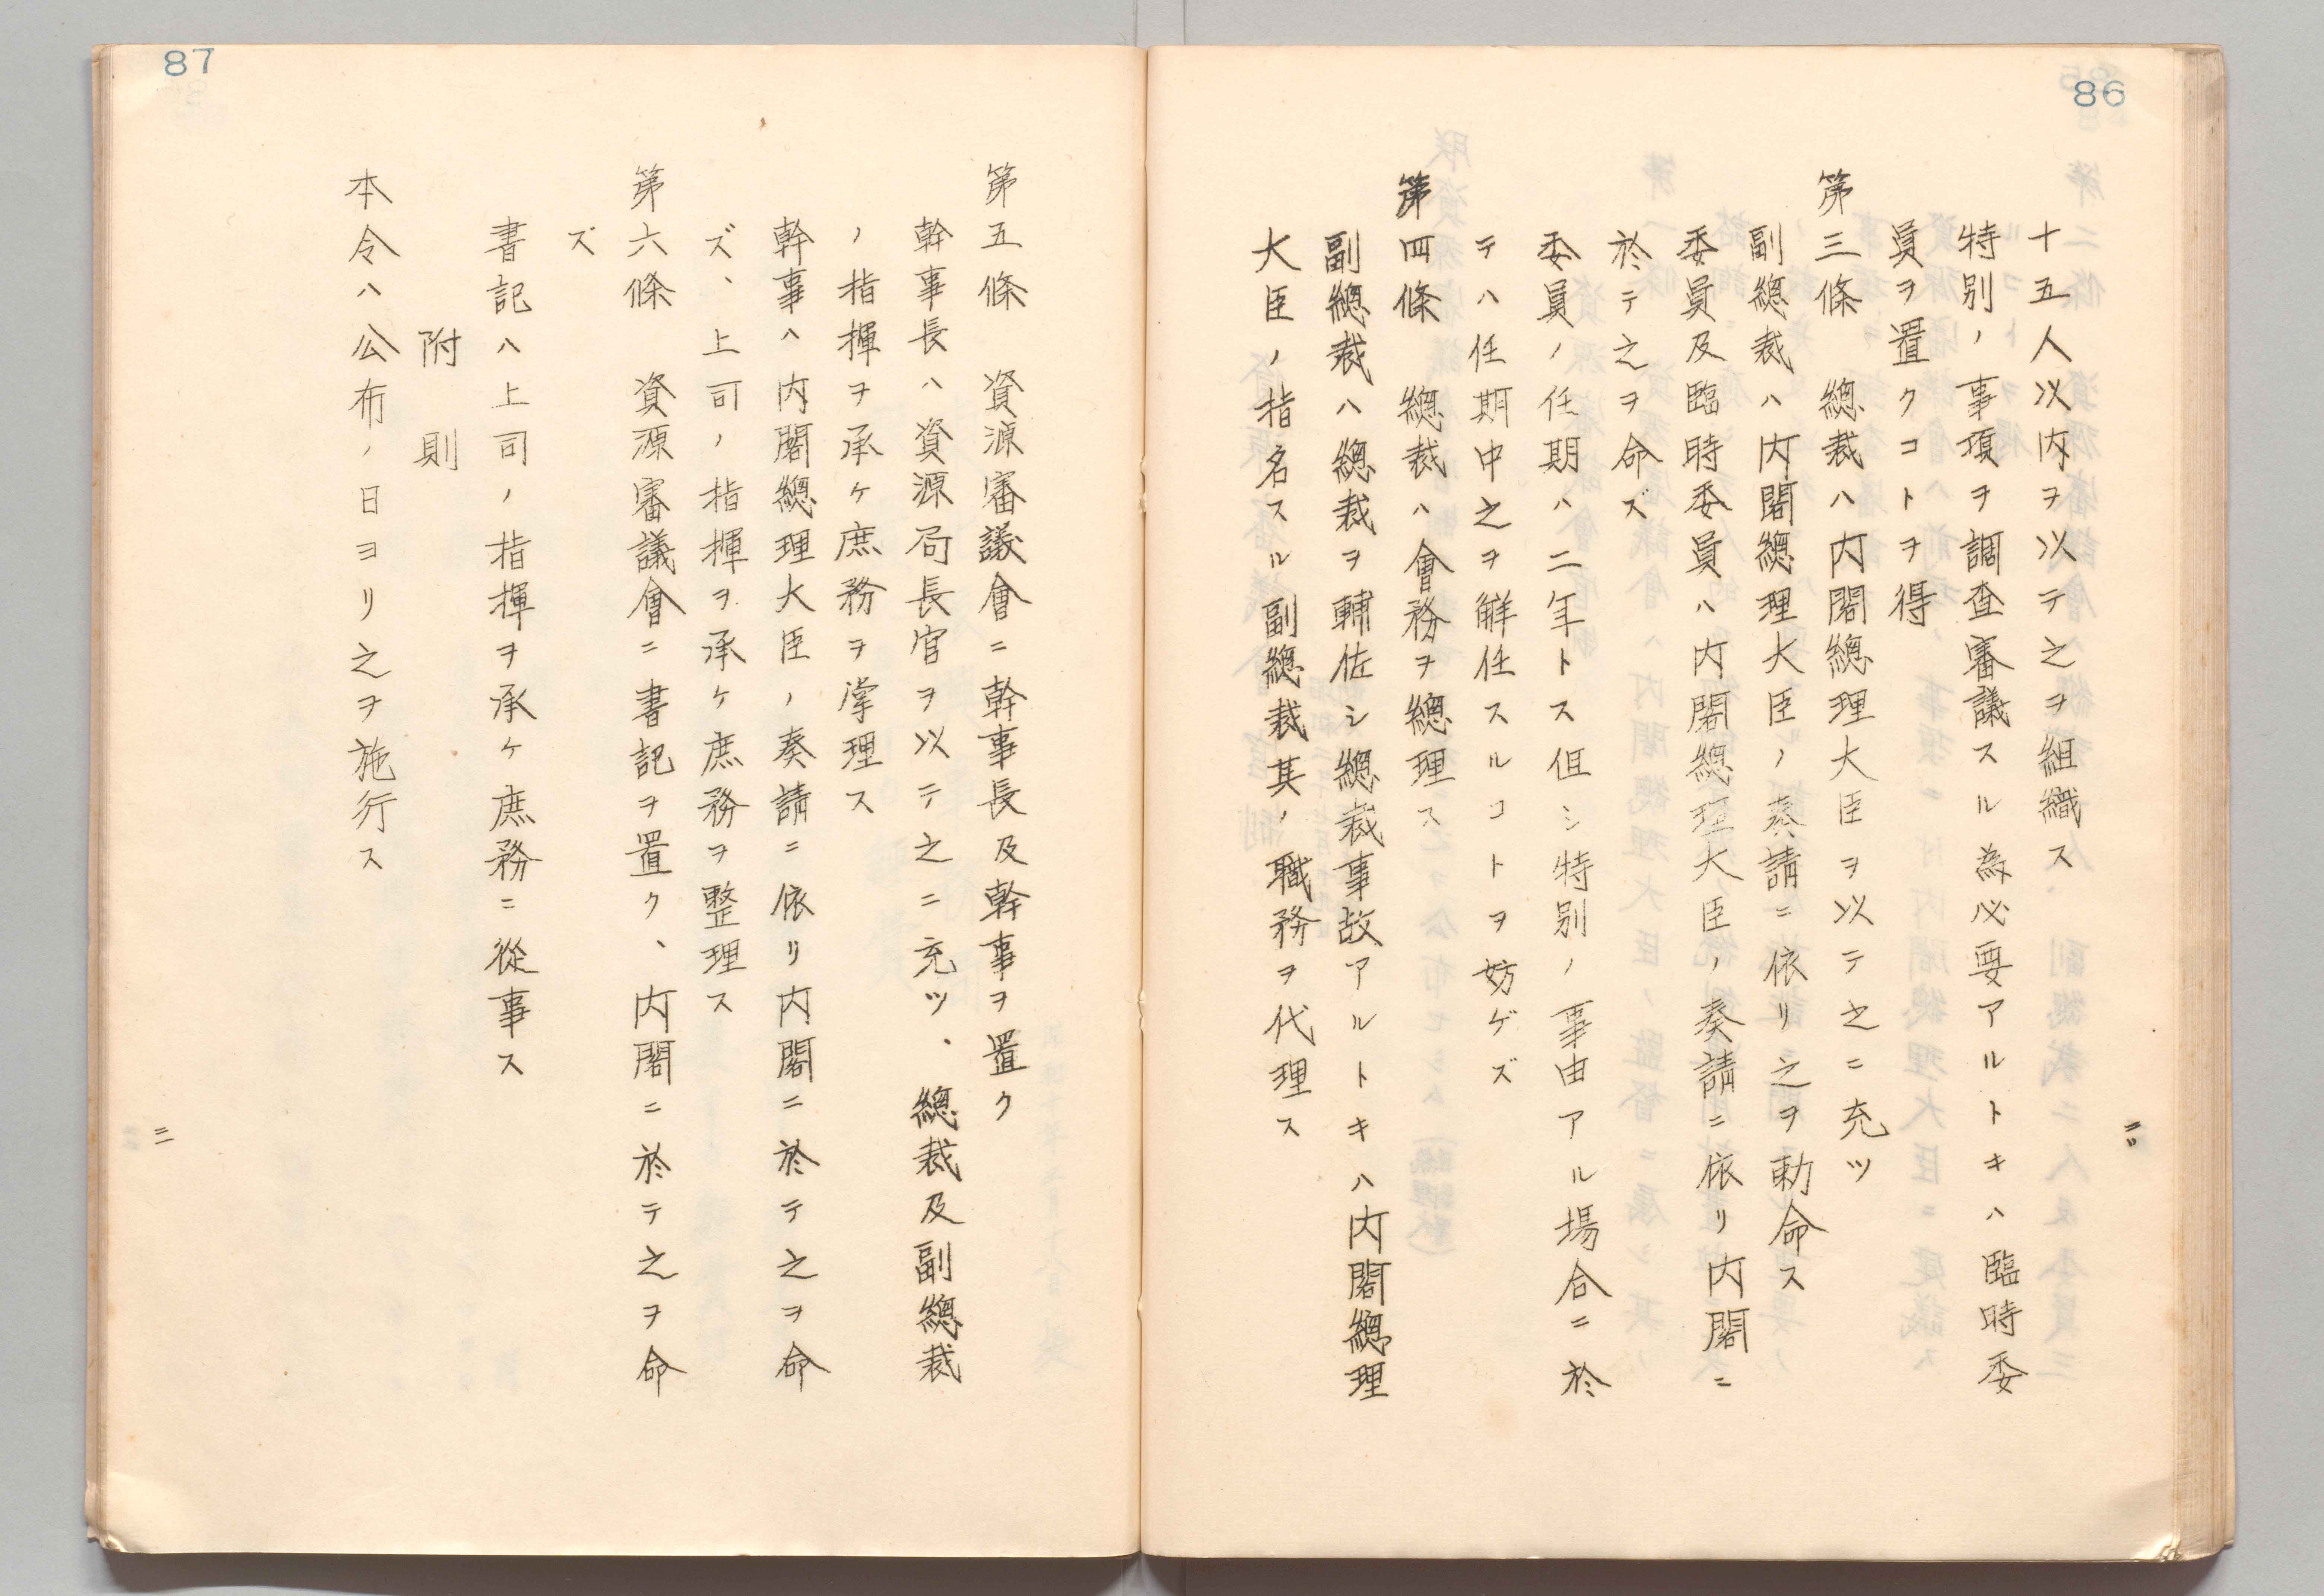 86
十五人以内ヲ以テ之ヲ組織ス
特別ノ事項ヲ調査審議スル為必要アルトキハ臨時委
員ヲ置クコトヲ得
第三條　總裁ハ内閣總理大臣ヲ以テ之ニ充ツ
副總裁ハ内閣總理大臣ノ奏請ニ依リ之ヲ勅命ス
委員及臨時委員ハ内閣總理大臣ノ奏請ニ依リ内閣ニ
於テ之ヲ命ズ
委員ノ任期ハ二年トス但シ特別ノ事由アル場合ニ於
テハ任期中之ヲ解任スルコトヲ妨ゲズ
第四條　總裁ハ會務ヲ總理ス
副總裁ハ總裁ヲ輔佐シ總裁事故アルトキハ内閣總理
大臣ノ指名スル副總裁其ノ職務ヲ代理ス
二
87
第五條　資源審議會ニ幹事長及幹事ヲ置ク
幹事長ハ資源局長官ヲ以テ之ニ充ツ、總裁及副總裁
ノ指揮ヲ承ケ庶務ヲ掌理ス
幹事ハ内閣總理大臣ノ奏請ニ依リ内閣ニ於テ之ヲ命
ズ、上司ノ指揮ヲ承ケ庶務ヲ整理ス
第六條　資源審議會ニ書記ヲ置ク、内閣ニ於テ之ヲ命
ズ
書記ハ上司ノ指揮ヲ承ケ庶務ニ從事ス
附則
本令ハ公布ノ日ヨリ之ヲ施行ス
三